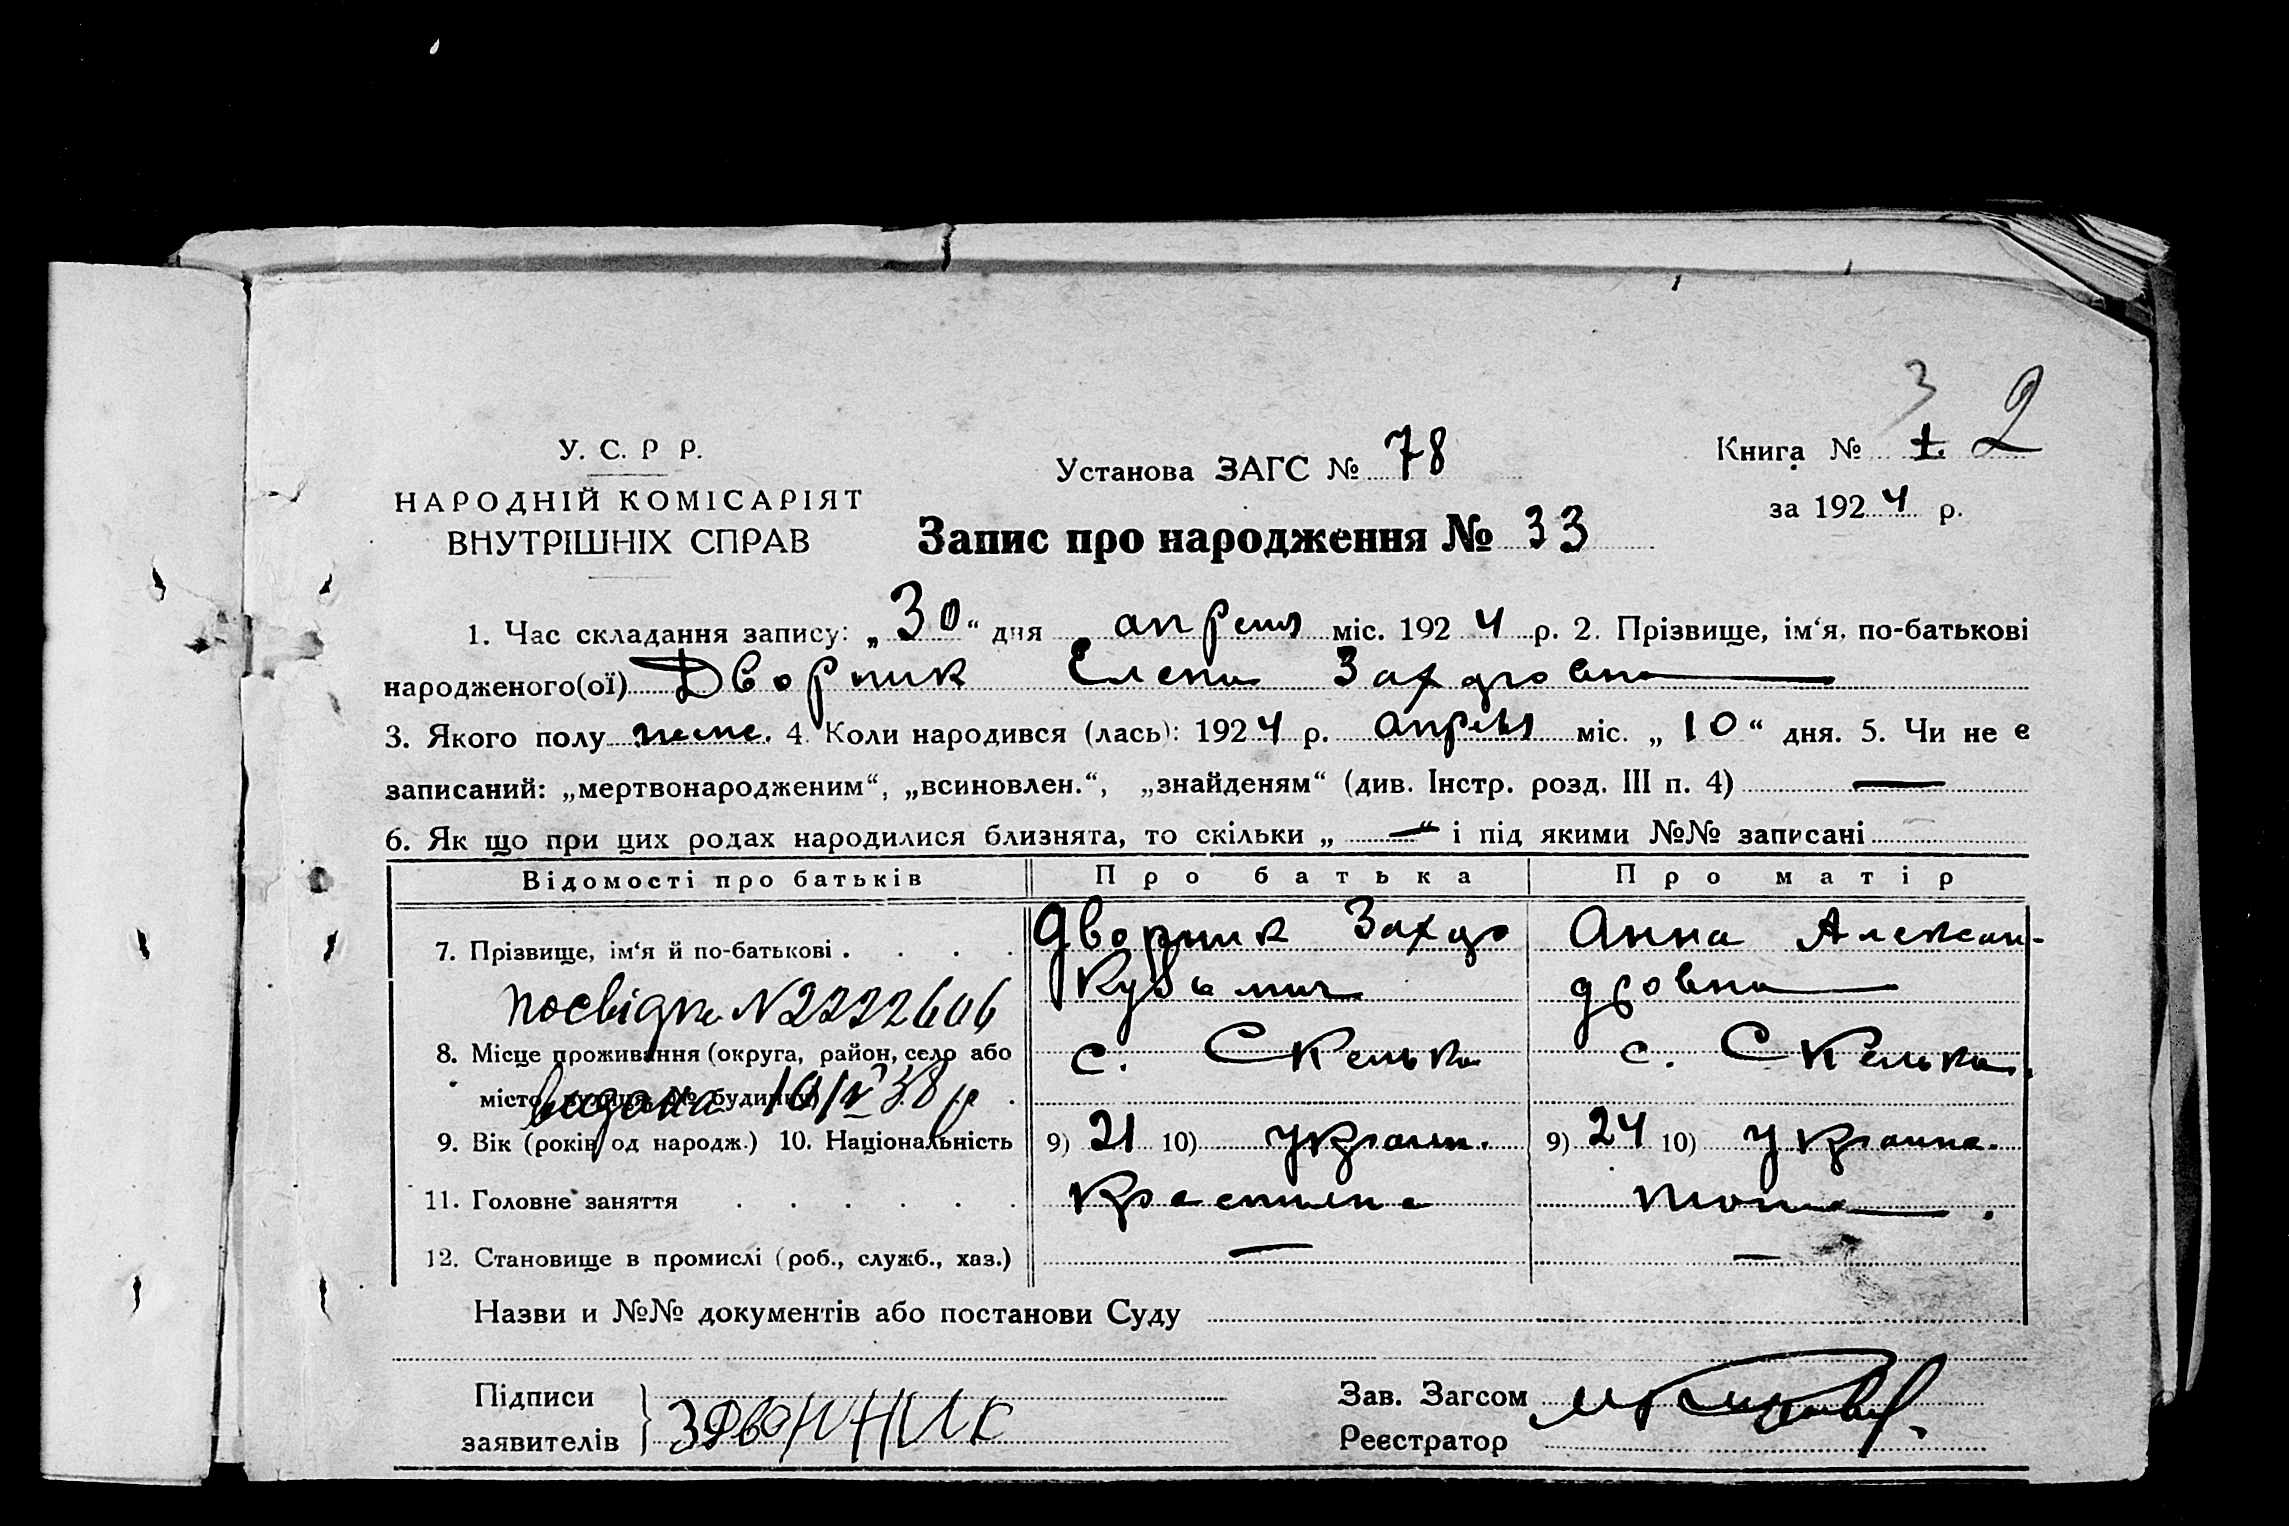 3 2
У. С. Р Р.
Установа ЗАГС № 78
Книга № 1.
НАРОДНІЙ КОМІСАРІЯТ
за 1924 р.
ВНУТРІШНІХ СПРАВ
Запис про народження № 33
1. Час складання запису: „30“ дня апреля міс. 1924 р. 2. Прізвище, ім‘я, по-батькові
народженого(ої) Дворник Елена Захаровна
3. Якого полу женс. 4. Коли народився (лась): 1924 р. апреля міс. „10“ дня. 5. Чи не є
записаний: „мертвонародженим“, „всиновлен.“, „знайденям“ (див. Інстр. розд. III п. 4) —
6. Як що при цих родах народилися близнята, то скільки „ — “ і під якими №№ записані
Відомості про батьків Про батька Про матір
7. Прізвище, ім‘я й по-батькові . . . . Дворник Захар Анна Алексан-
Кузьмич дровна
посвідка N 2222606
8. Місце проживання (округа, район, село або с. Скелька с. Скелька.
місто, вулиця, № будинку)
видана 10/V 38 р
9. Вік (років од народж.) 10. Національність 9) 21 10) украин. 9) 24 10) украинка.
11. Головне заняття . . . . . .
12. Становище в промислі (роб., служб., хаз.) — —
Назви и №№ документів або постанови Суду
Підписи
заявителів } ЗДворник
Зав. Загсом
Реєстратор